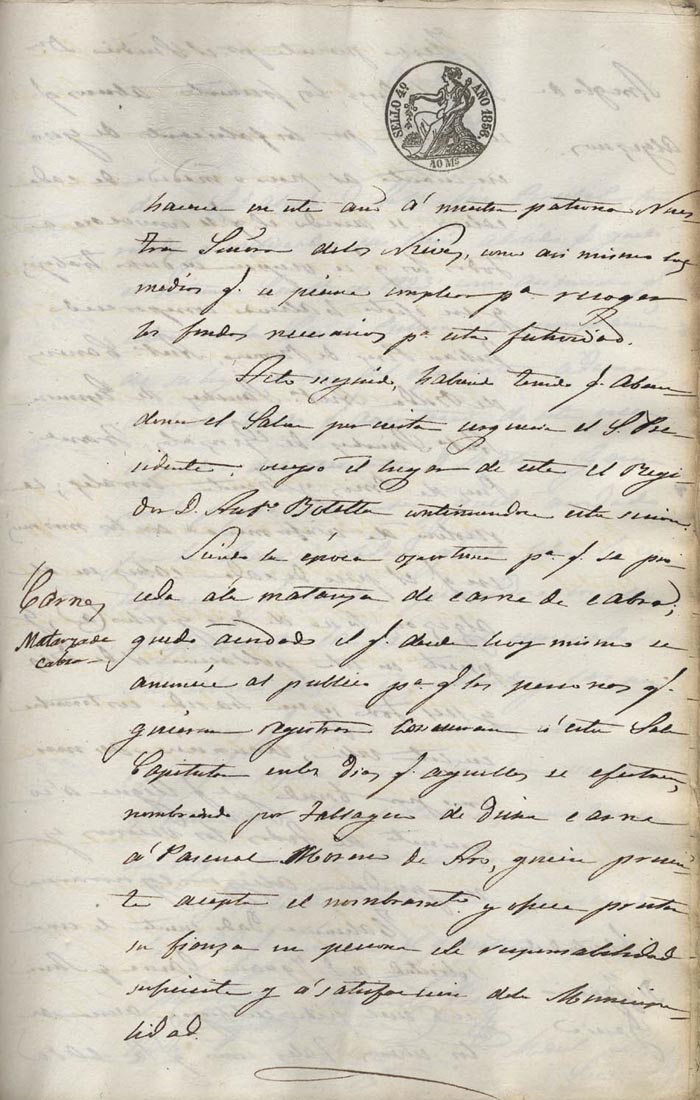 SELLO 4º AÑO 1858.
40 Mˢ
hacerse en este año á nuestra patrona Nues
tra Señora delas Nieves, como asi mismo los
medios q.e se piensa emplear pª recoger
los fondos necesarios pª esta festividad.
Acto seguido, habiendo tenido q.e Aban
donar el Salon por cierta urgencia el S. Pre
sidente, ocupo el lugar de este el Regi
dor D. Antº Botella continuandose esta sesion.
Siendo la época oportuna pª q.e se pro
Carnes
Matanza de
cabra
ceda ála matanza de carne de cabra;
quedo acordado el q.e desde hoy mismo se
anuncie al publico pª q.e las personas q.e
quieran registros concurran á esta Sala
Capitular enlos dias q.e aquellos se efectuen,
nombrando por de dicha carne
á Pascual Moreno de Aro, quien presen
te acepta el nombramtº y ofrece prestar
su fianza en persona de responsabilidad
suficiente y á satisfaccion dela Municipa
lidad.